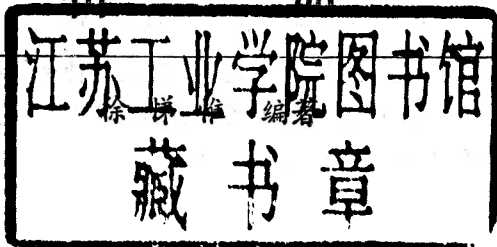 江苏工业学院图书馆
编著
藏书章